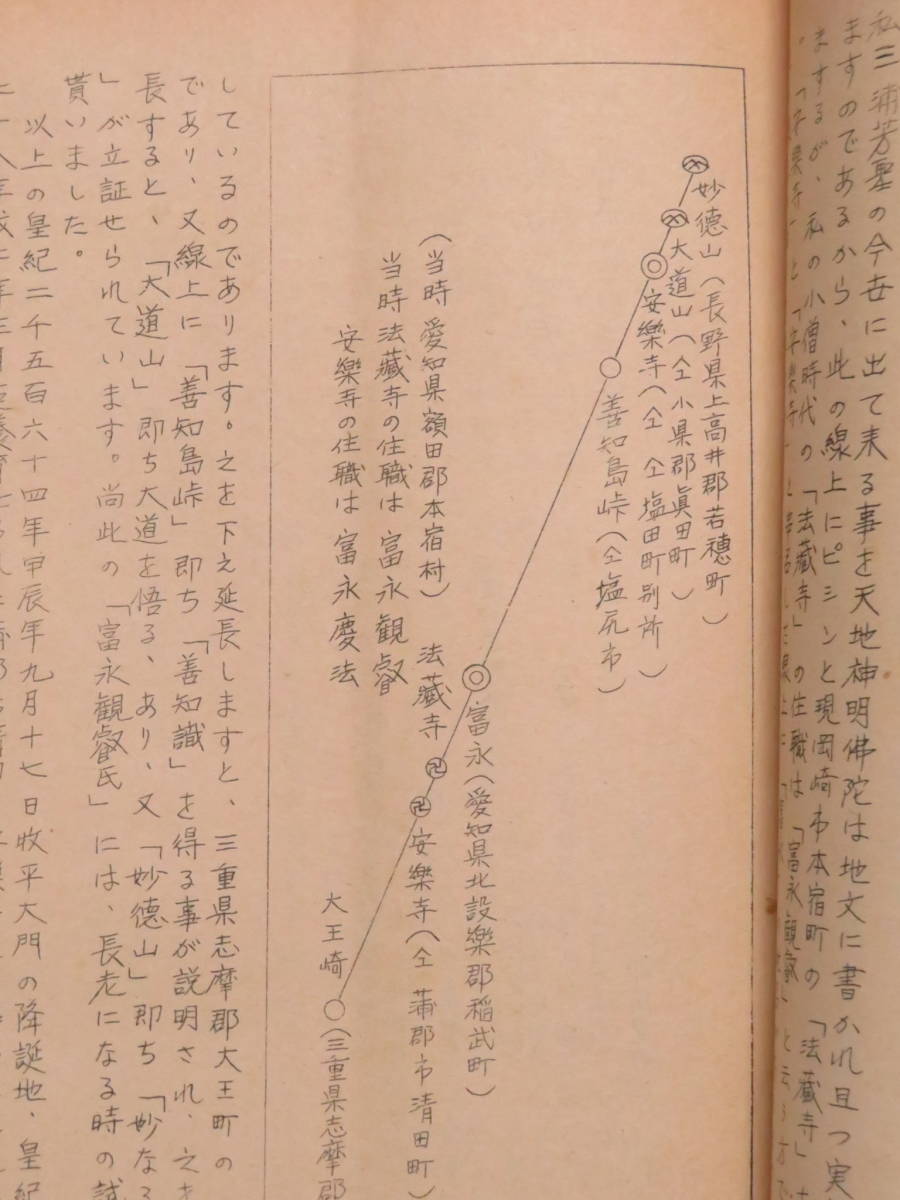 私三浦芳聖の今世に出て来る事を天地神明佛陀は地文に書かれ且つ実
ますのであるから、此の線上にピシンと現岡崎市本宿町の「法藏寺」
ますが、私の小僧時代の「法藏寺」の住職は「富永観叡」と云う
妙德山(長野県上高井郡若穂町)
大道山(仝小県郡眞田町)
安樂寺(仝仝塩田町別所)
善知島峠(仝塩尻市)
富永(愛知県北設樂郡稲武町)
法藏寺
(当時愛知県額田郡本宿村)
当時法藏寺の住職は富永観叡
安樂寺の住職は富永慶法
安樂寺(仝蒲郡市清田町)
大王崎
(三重県志摩郡
しているのであります。之を下え延長しますと、三重県志摩郡大王町の
であり、又線上に「善知島峠」即ち「善知識」を得る事が説明され、之を
長すると、「大道山」即ち大道を悟る、あり、又「妙德山」即ち「妙なる
」が立証せられています。尚此の「富永観叡氏」には、長老になる時の試
貰いました。
以上の皇紀二千五百六十四年甲辰年九月十七日收平大門の降誕地、皇紀